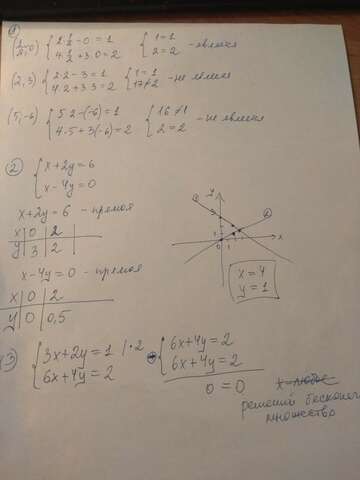 1
(1/2; 0) { 2·1/2 - 0 = 1 { 1 = 1
4·1/2 + 3·0 = 2 2 = 2 - является
(2, 3) { 2·2 - 3 = 1 { 1 = 1
4·2 + 3·3 = 2 17 ≠ 2 - не являет
(5, -6) { 5·2 - (-6) = 1 { 16 ≠ 1
4·5 + 3(-6) = 2 2 = 2 - не является
2
{ x + 2y = 6
x - 4y = 0
x + 2y = 6 - прямая
x 0 2
y 3 2
x - 4y = 0 - прямая
x 0 2
y 0 0,5
y
x
0
x = 4
y = 1
3
{ 3x + 2y = 1 | · 2 { 6x + 4y = 2
6x + 4y = 2 6x + 4y = 2
0 = 0
решений бесконеч
множество